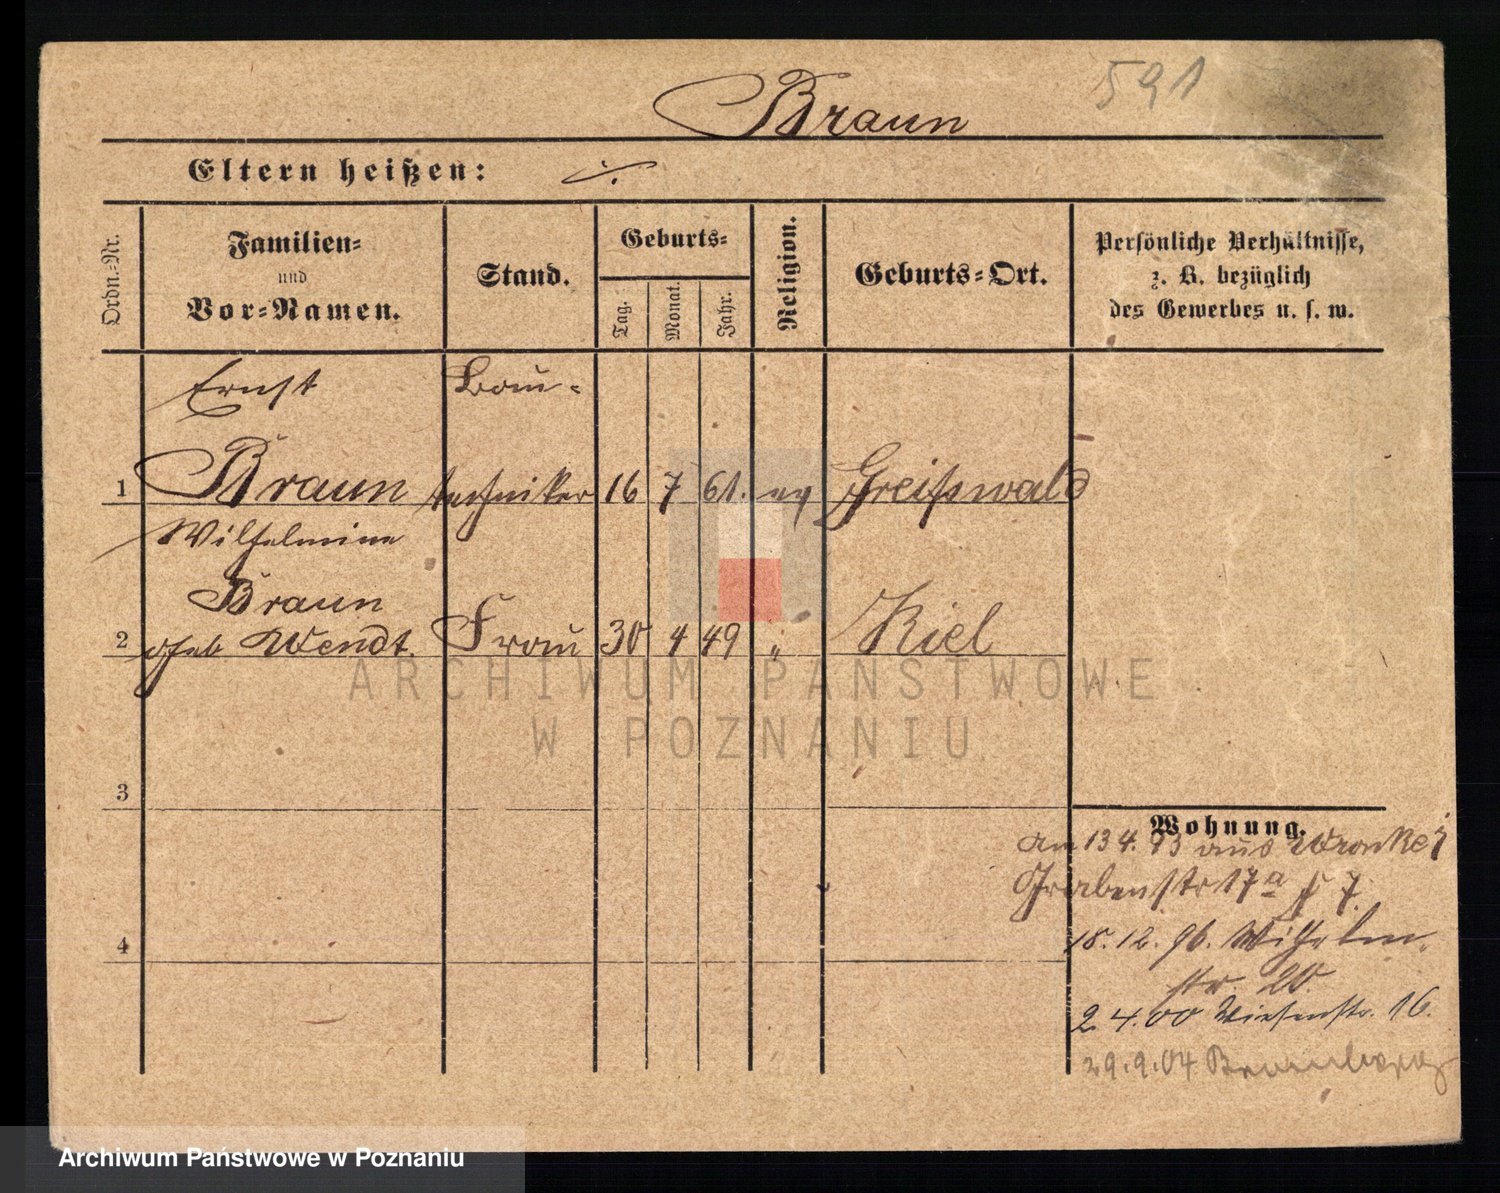 Braun
591
Eltern heißen: ./.
Ordn.-Nr.
Familien-
und
Vor-Namen.
Stand.
Geburts-
Tag.
Monat.
Jahr.
Religion.
Geburts-Ort.
Persönliche Verhältnisse,
z. B. bezüglich
des Gewerbes u. s. w.
Ernst Bau-
1 Braun techniker 16 7 61. ev Greifswald
Wilhelmine
Braun
2 geb Wendt. Frau 30 4 49 " Kiel
3
4
Wohnung.
am 13 4. 93 aus Wronke
Grabenstr 17a 7.
18. 12. 96. Wilhelm-
str. 20
2 4. 00 Wiesenstr. 16.
29. 9. 04. Bromberg
ARCHIWUM PAŃSTWOWE
W POZNANIU
Archiwum Państwowe w Poznaniu